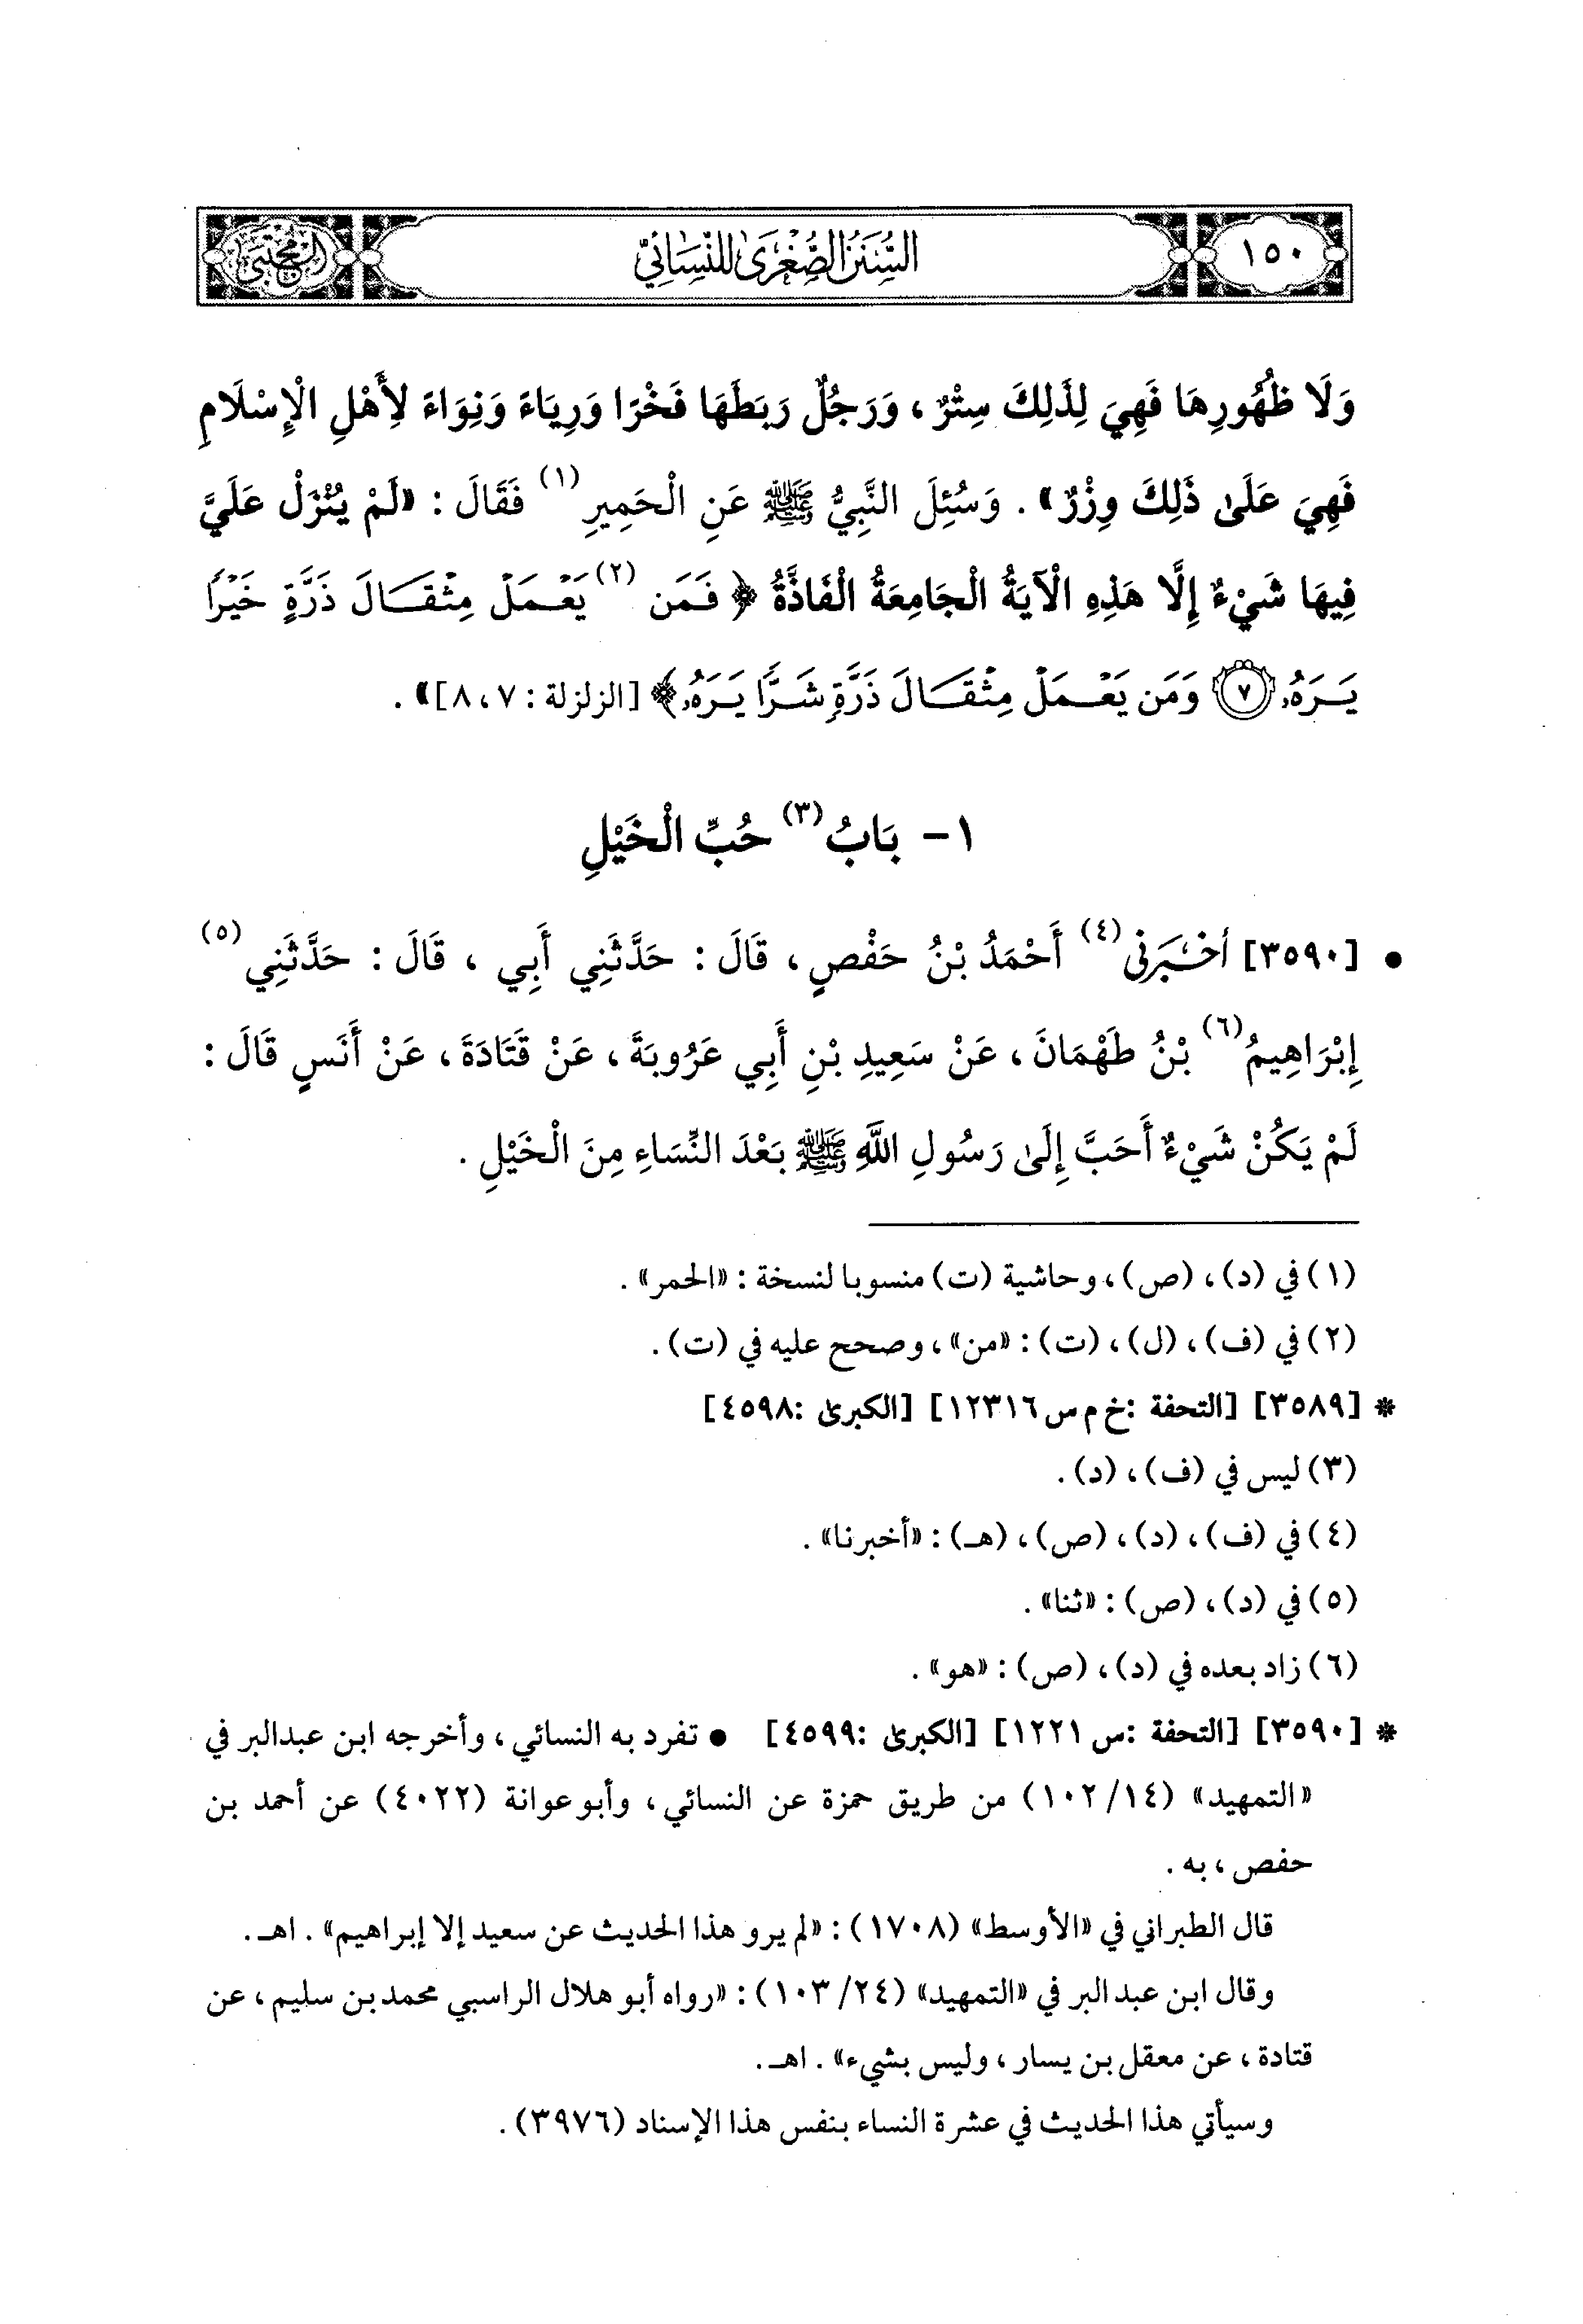 ١٥٠
السُّنَنُ الصُّغْرَىٰ لِلنَّسَائِيِّ
المجتبى
وَلَا ظُهُورِهَا فَهِيَ لِذَلِكَ سِتْرٌ ، وَرَجُلٌ رَبَطَهَا فَخْرًا وَرِيَاءً وَنِوَاءً لِأَهْلِ الْإِسْلَامِ
فَهِيَ عَلَىٰ ذَلِكَ وِزْرٌ» . وَسُئِلَ النَّبِيُّ ﷺ عَنِ الْحَمِيرِ (١) فَقَالَ : «لَمْ يُنْزَلْ عَلَيَّ
فِيهَا شَيْءٌ إِلَّا هَذِهِ الْآيَةُ الْجَامِعَةُ الْفَاذَّةُ ﴿ فَمَن (٢) يَعْمَلْ مِثْقَالَ ذَرَّةٍ خَيْرًا
يَرَهُۥ ٧ وَمَن يَعْمَلْ مِثْقَالَ ذَرَّةٍ شَرًّا يَرَهُۥ ﴾ [الزلزلة : ٧، ٨]» .
١ - بَابُ (٣) حُبِّ الْخَيْلِ
• [٣٥٩٠] أَخْبَرَنِي (٤) أَحْمَدُ بْنُ حَفْصٍ ، قَالَ : حَدَّثَنِي أَبِي ، قَالَ : حَدَّثَنِي (٥)
إِبْرَاهِيمُ (٦) بْنُ طَهْمَانَ ، عَنْ سَعِيدِ بْنِ أَبِي عَرُوبَةَ ، عَنْ قَتَادَةَ ، عَنْ أَنَسٍ قَالَ :
لَمْ يَكُنْ شَيْءٌ أَحَبَّ إِلَىٰ رَسُولِ اللَّهِ ﷺ بَعْدَ النِّسَاءِ مِنَ الْخَيْلِ .
(١) في (د) ، (ص) ، وحاشية (ت) منسوبا لنسخة : «الحمر» .
(٢) في (ف) ، (ل) ، (ت) : «من» ، وصحح عليه في (ت) .
* [٣٥٨٩] [التحفة : خ م س ١٢٣١٦] [الكبرىٰ : ٤٥٩٨]
(٣) ليس في (ف) ، (د) .
(٤) في (ف) ، (د) ، (ص) ، (هـ) : «أخبرنا» .
(٥) في (د) ، (ص) : «ثنا» .
(٦) زاد بعده في (د) ، (ص) : «هو» .
* [٣٥٩٠] [التحفة : س ١٢٢١] [الكبرىٰ : ٤٥٩٩] • تفرد به النسائي ، وأخرجه ابن عبدالبر في
«التمهيد» (١٤/ ١٠٢) من طريق حمزة عن النسائي ، وأبو عوانة (٤٠٢٢) عن أحمد بن
حفص ، به .
قال الطبراني في «الأوسط» (١٧٠٨) : «لم يرو هذا الحديث عن سعيد إلا إبراهيم» . اهـ .
وقال ابن عبد البر في «التمهيد» (٢٤/ ١٠٣) : «رواه أبو هلال الراسبي محمد بن سليم ، عن
قتادة ، عن معقل بن يسار ، وليس بشيء» . اهـ .
وسيأتي هذا الحديث في عشرة النساء بنفس هذا الإسناد (٣٩٧٦) .